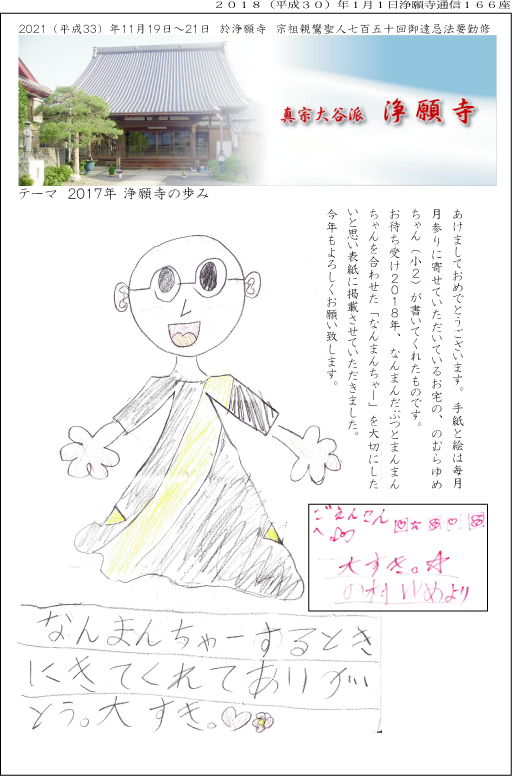 2018（平成30）年1月1日浄願寺通信166座
2021（平成33）年11月19日～21日 於浄願寺 宗祖親鸞聖人七百五十回御遠忌法要勤修
真宗大谷派 浄願寺
テーマ 2017年 浄願寺の歩み
あけましておめでとうございます。手紙と絵は毎月
月参りに寄せていただいているお宅の、のむらゆめ
ちゃん（小2）が書いてくれたものです。
お待ち受け2018年、なんまんだぶつとまんまん
ちゃんを合わせた「なんまんちゃー」を大切にした
いと思い表紙に掲載させていただきました。
今年もよろしくお願い致します。
ごえんさん
へ
大すき。
の村ゆめより
なんまんちゃーするとき
にきてくれてありが
とう。大すき。